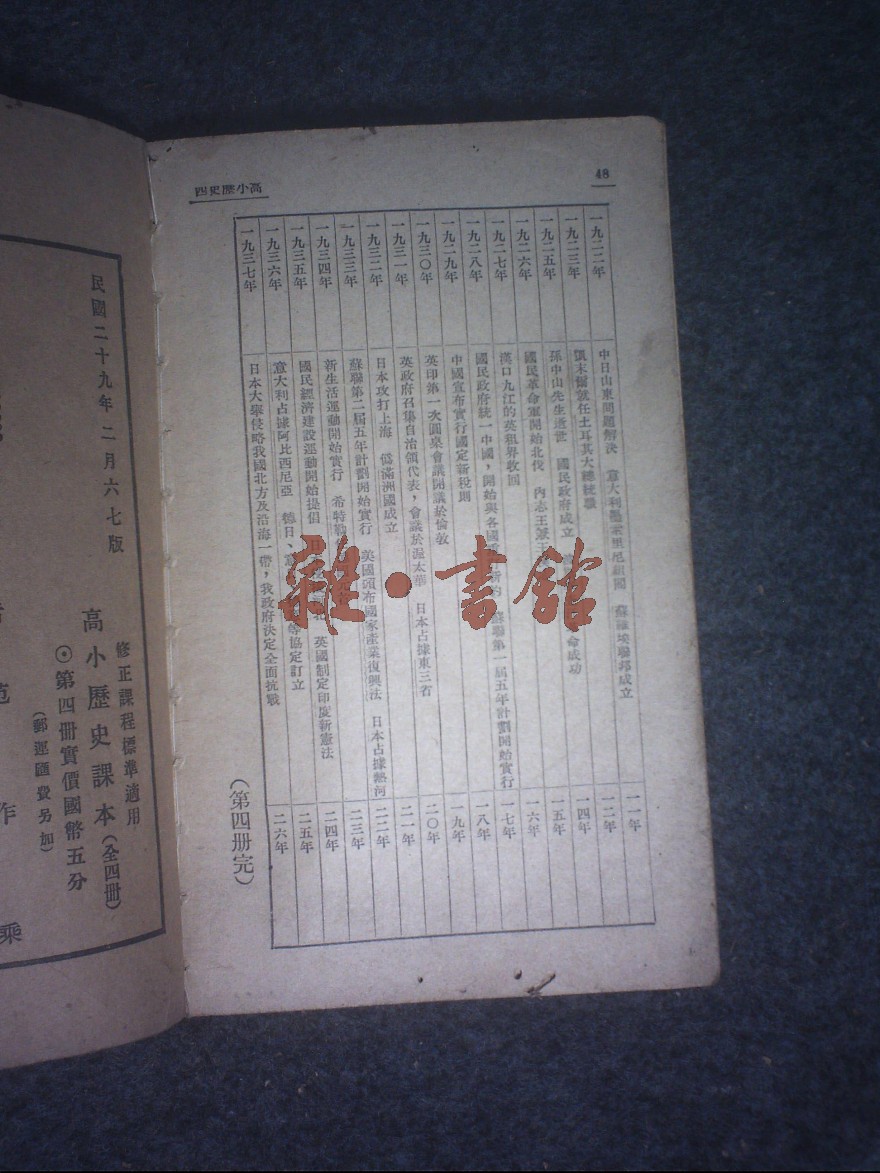 48
高小歷史四
一九二二年 中日山東問題解決 意大利墨索里尼組閣 蘇維埃聯邦成立 一一年
一九二三年 凱末爾就任土耳其大總統職 一二年
一九二五年 孫中山先生逝世 國民政府成立 命成功 一四年
一九二六年 國民革命軍開始北伐 內志王 一五年
一九二七年 漢口九江的英租界收回 一六年
一九二八年 國民政府統一中國，開始與各國 新約 蘇聯第一屆五年計劃開始實行 一七年
一九二九年 中國宣布實行國定新稅則 一八年
一九三〇年 英印第一次圓桌會議開議於倫敦 一九年
一九三一年 英政府召集自治領代表，會議於渥太華 日本占據東三省 二〇年
一九三二年 日本攻打上海 偽滿洲國成立 二一年
一九三三年 蘇聯第二屆五年計劃開始實行 美國頒布國家產業復興法 日本占據熱河 二二年
一九三四年 新生活運動開始實行 希特勒 二三年
一九三五年 國民經濟建設運動開始提倡 英國制定印度新憲法 二四年
一九三六年 意大利占據阿比西尼亞 德日、意 等協定訂立 二五年
一九三七年 日本大舉侵略我國北方及沿海一帶，我政府決定全面抗戰 二六年
（第四冊完）
雜·書館
修正課程標準適用
高小歷史課本（全四冊）
⊙第四冊實價國幣五分
（郵運匯費另加）
民國二十九年二月六七版
范
作
乘